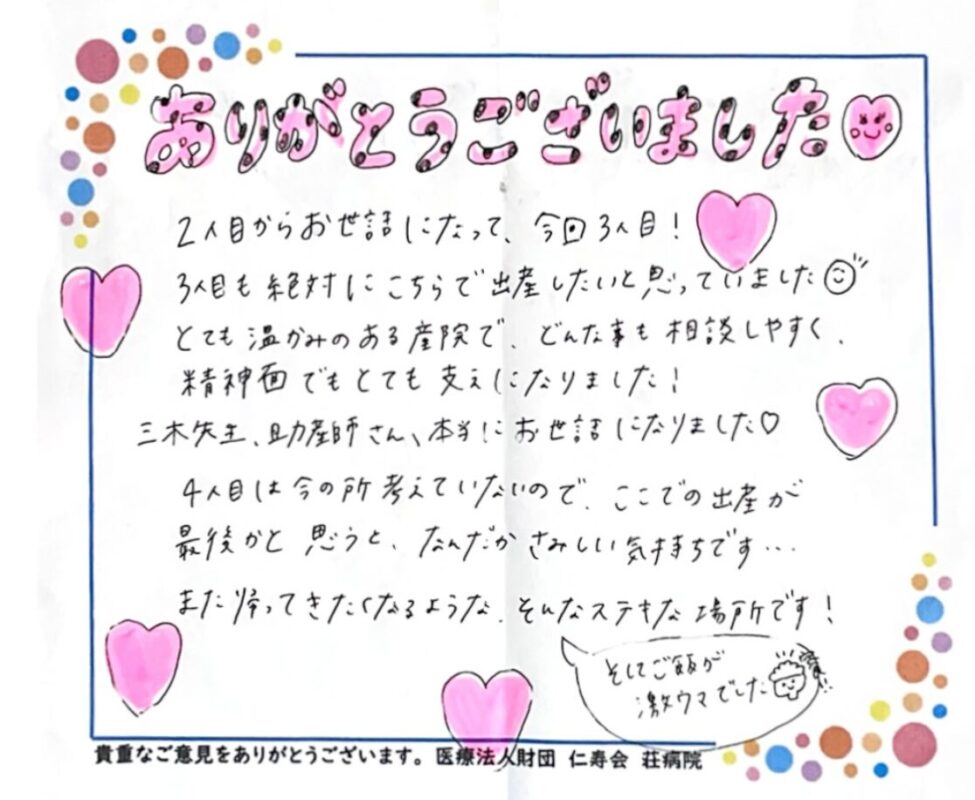 ありがとうございました
2人目からお世話になって、今回3人目!
3人目も絶対にこちらで出産したいと思っていました
とても温かみのある産院で、どんな事も相談しやすく、
精神面でもとても支えになりました!
三木先生、助産師さん、本当にお世話になりました♡
4人目は今の所考えていないので、ここでの出産が
最後かと思うと、なんだかさみしい気持ちです…
また帰ってきたくなるような、そんなステキな場所です!
そしてご飯が
激ウマでした
貴重なご意見をありがとうございます。医療法人財団 仁寿会 荘病院